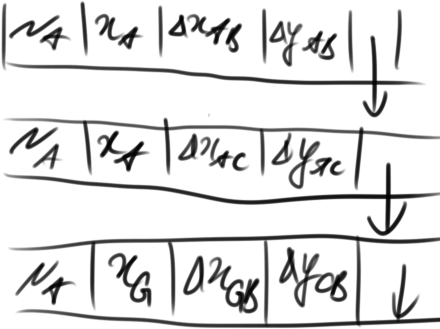 N_A | x_A | Δx_AB | Δy_AB
N_A | x_A | Δx_AC | Δy_AC
N_A | x_G | Δx_GB | Δy_CB